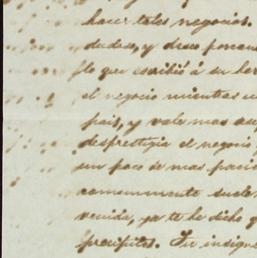 hacer tales negocios.
dudas, y deseo ponerme
lo que escribió á su her
el negocio mientras u
pais, y vale mas
desprestigia el negocio
un poco de mas paci
comunmente suele
venida, ya te he dicho q
precipites. Tu insign